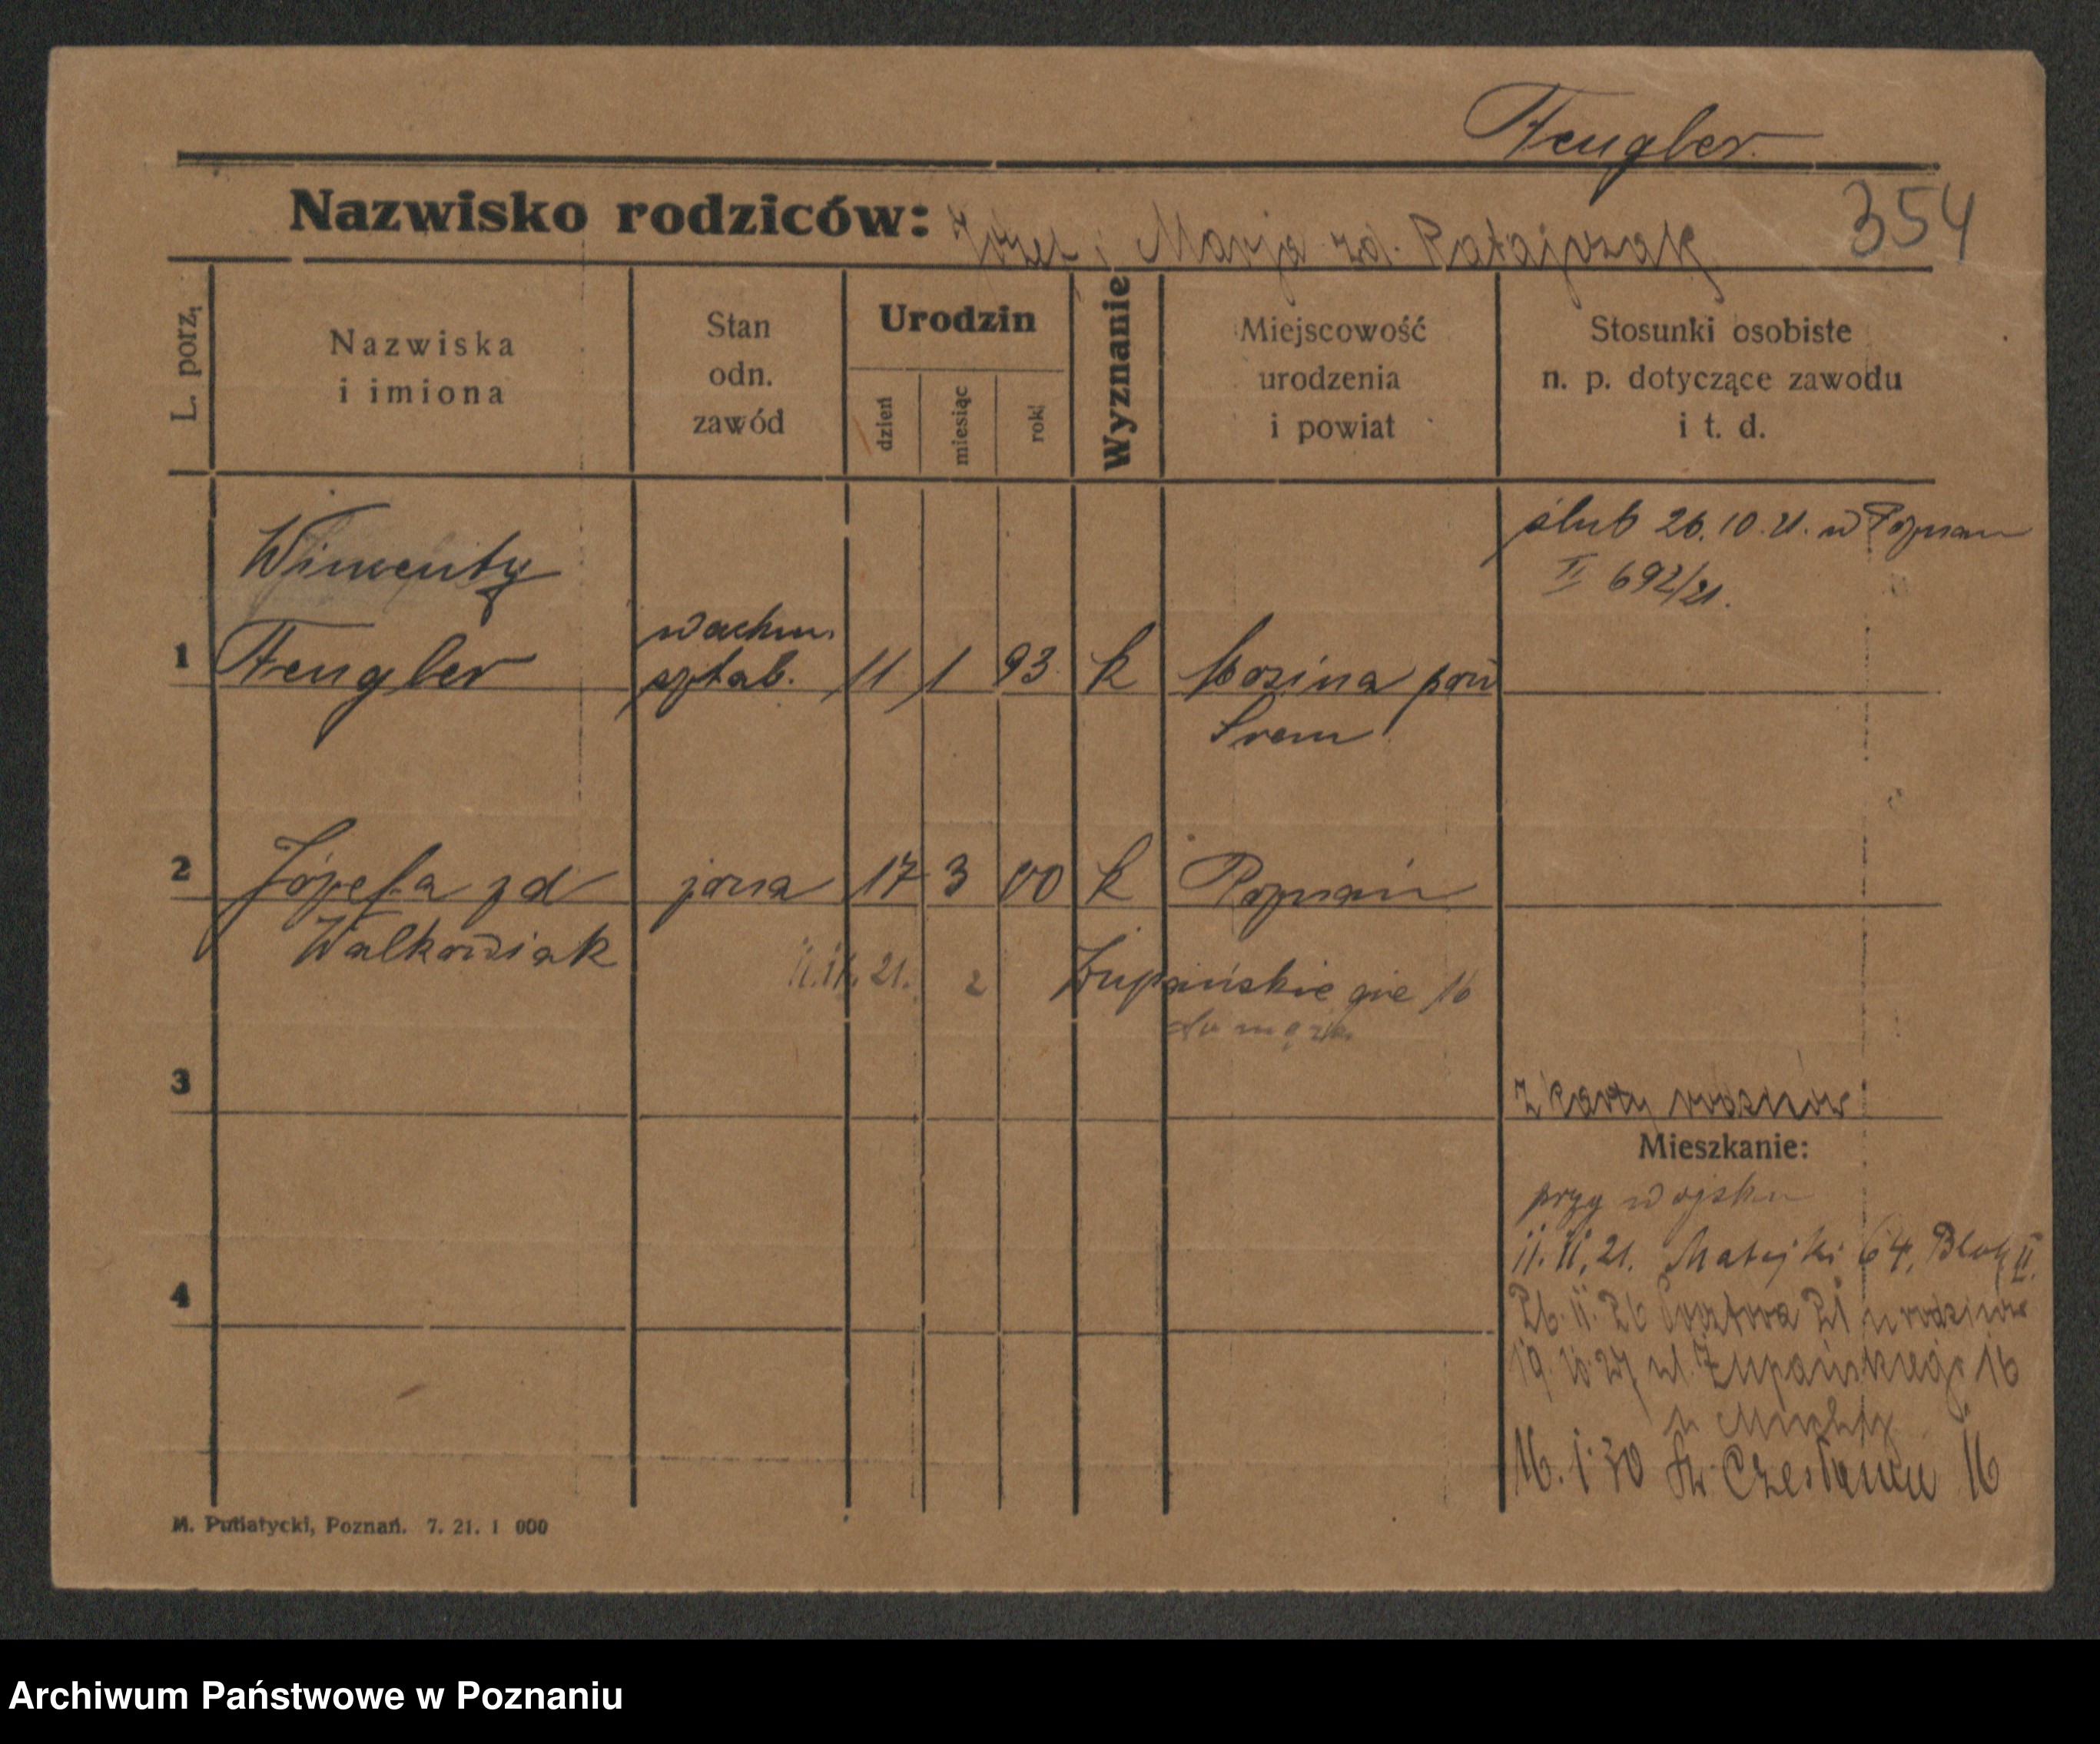 Fengler
Nazwisko rodziców: Józef i Marja zd. Ratajczak
354
L. porz.
Nazwiska
i imiona
Stan
odn.
zawód
Urodzin
dzień
miesiąc
rok
Wyznanie
Miejscowość
urodzenia
i powiat
Stosunki osobiste
n. p. dotyczące zawodu
i t. d.
ślub 26.10.21. w Poznan
II 692/21.
Wincenty
1 Fengler wachm. sztab. 11 1 93 k Mosina pow
Srem
2 Józefa zd żona 17 3 00 k Poznań
Walkowiak
11.11.21. 2 Żupańskiego 16
do męża
3
z karty rodziców
Mieszkanie:
przy wojsku
11.11.21. Matejki 64, Blok II.
4
26.11.26 21 u rodziców
19.10.27 ul. Żupańskiego 16
u
16.1.30 Św. Czesława 16
M. Putiatycki, Poznań. 7. 21. 1 000
Archiwum Państwowe w Poznaniu